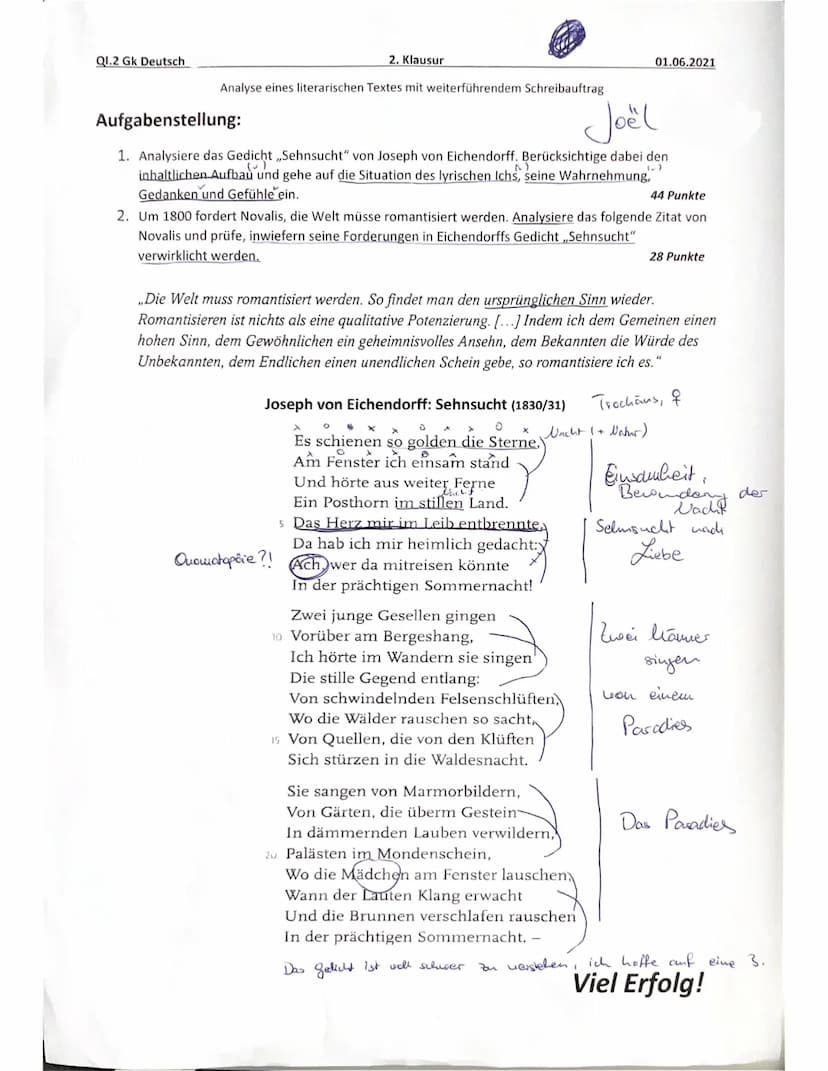 QI.2 Gk Deutsch 2. Klausur 01.06.2021
Analyse eines literarischen Textes mit weiterführendem Schreibauftrag
Aufgabenstellung:
Joël
1. Analysiere das Gedicht „Sehnsucht“ von Joseph von Eichendorff. Berücksichtige dabei den
inhaltlichen Aufbau und gehe auf die Situation des lyrischen Ichs, seine Wahrnehmung,
Gedanken und Gefühle ein. 44 Punkte
2. Um 1800 fordert Novalis, die Welt müsse romantisiert werden. Analysiere das folgende Zitat von
Novalis und prüfe, inwiefern seine Forderungen in Eichendorffs Gedicht „Sehnsucht“
verwirklicht werden. 28 Punkte
„Die Welt muss romantisiert werden. So findet man den ursprünglichen Sinn wieder.
Romantisieren ist nichts als eine qualitative Potenzierung. [...] Indem ich dem Gemeinen einen
hohen Sinn, dem Gewöhnlichen ein geheimnisvolles Ansehn, dem Bekannten die Würde des
Unbekannten, dem Endlichen einen unendlichen Schein gebe, so romantisiere ich es.“
Joseph von Eichendorff: Sehnsucht (1830/31) Trochäus, ♀
Es schienen so golden die Sterne, Nacht (+ Natur)
Am Fenster ich einsam stand
Und hörte aus weiter Ferne
Ein Posthorn im stillen Land.
Einsamkeit,
der
Nacht
5 Das Herz mir im Leib entbrennte,
Da hab ich mir heimlich gedacht:
Ach, wer da mitreisen könnte
In der prächtigen Sommernacht!
Sehnsucht nach
Liebe
Onomatopöie?!
Zwei junge Gesellen gingen
10 Vorüber am Bergeshang,
Ich hörte im Wandern sie singen
Die stille Gegend entlang:
Von schwindelnden Felsenschlüften,
Wo die Wälder rauschen so sacht,
15 Von Quellen, die von den Klüften
Sich stürzen in die Waldesnacht.
Zwei Männer
singen
von einem
Paradies
Sie sangen von Marmorbildern,
Von Gärten, die überm Gestein
In dämmernden Lauben verwildern,
20 Palästen im Mondenschein,
Wo die Mädchen am Fenster lauschen,
Wann der Lauten Klang erwacht
Und die Brunnen verschlafen rauschen
In der prächtigen Sommernacht. –
Das Paradies
Das Gedicht ist voll schwer zu verstehen, ich hoffe auf eine 3.
Viel Erfolg!